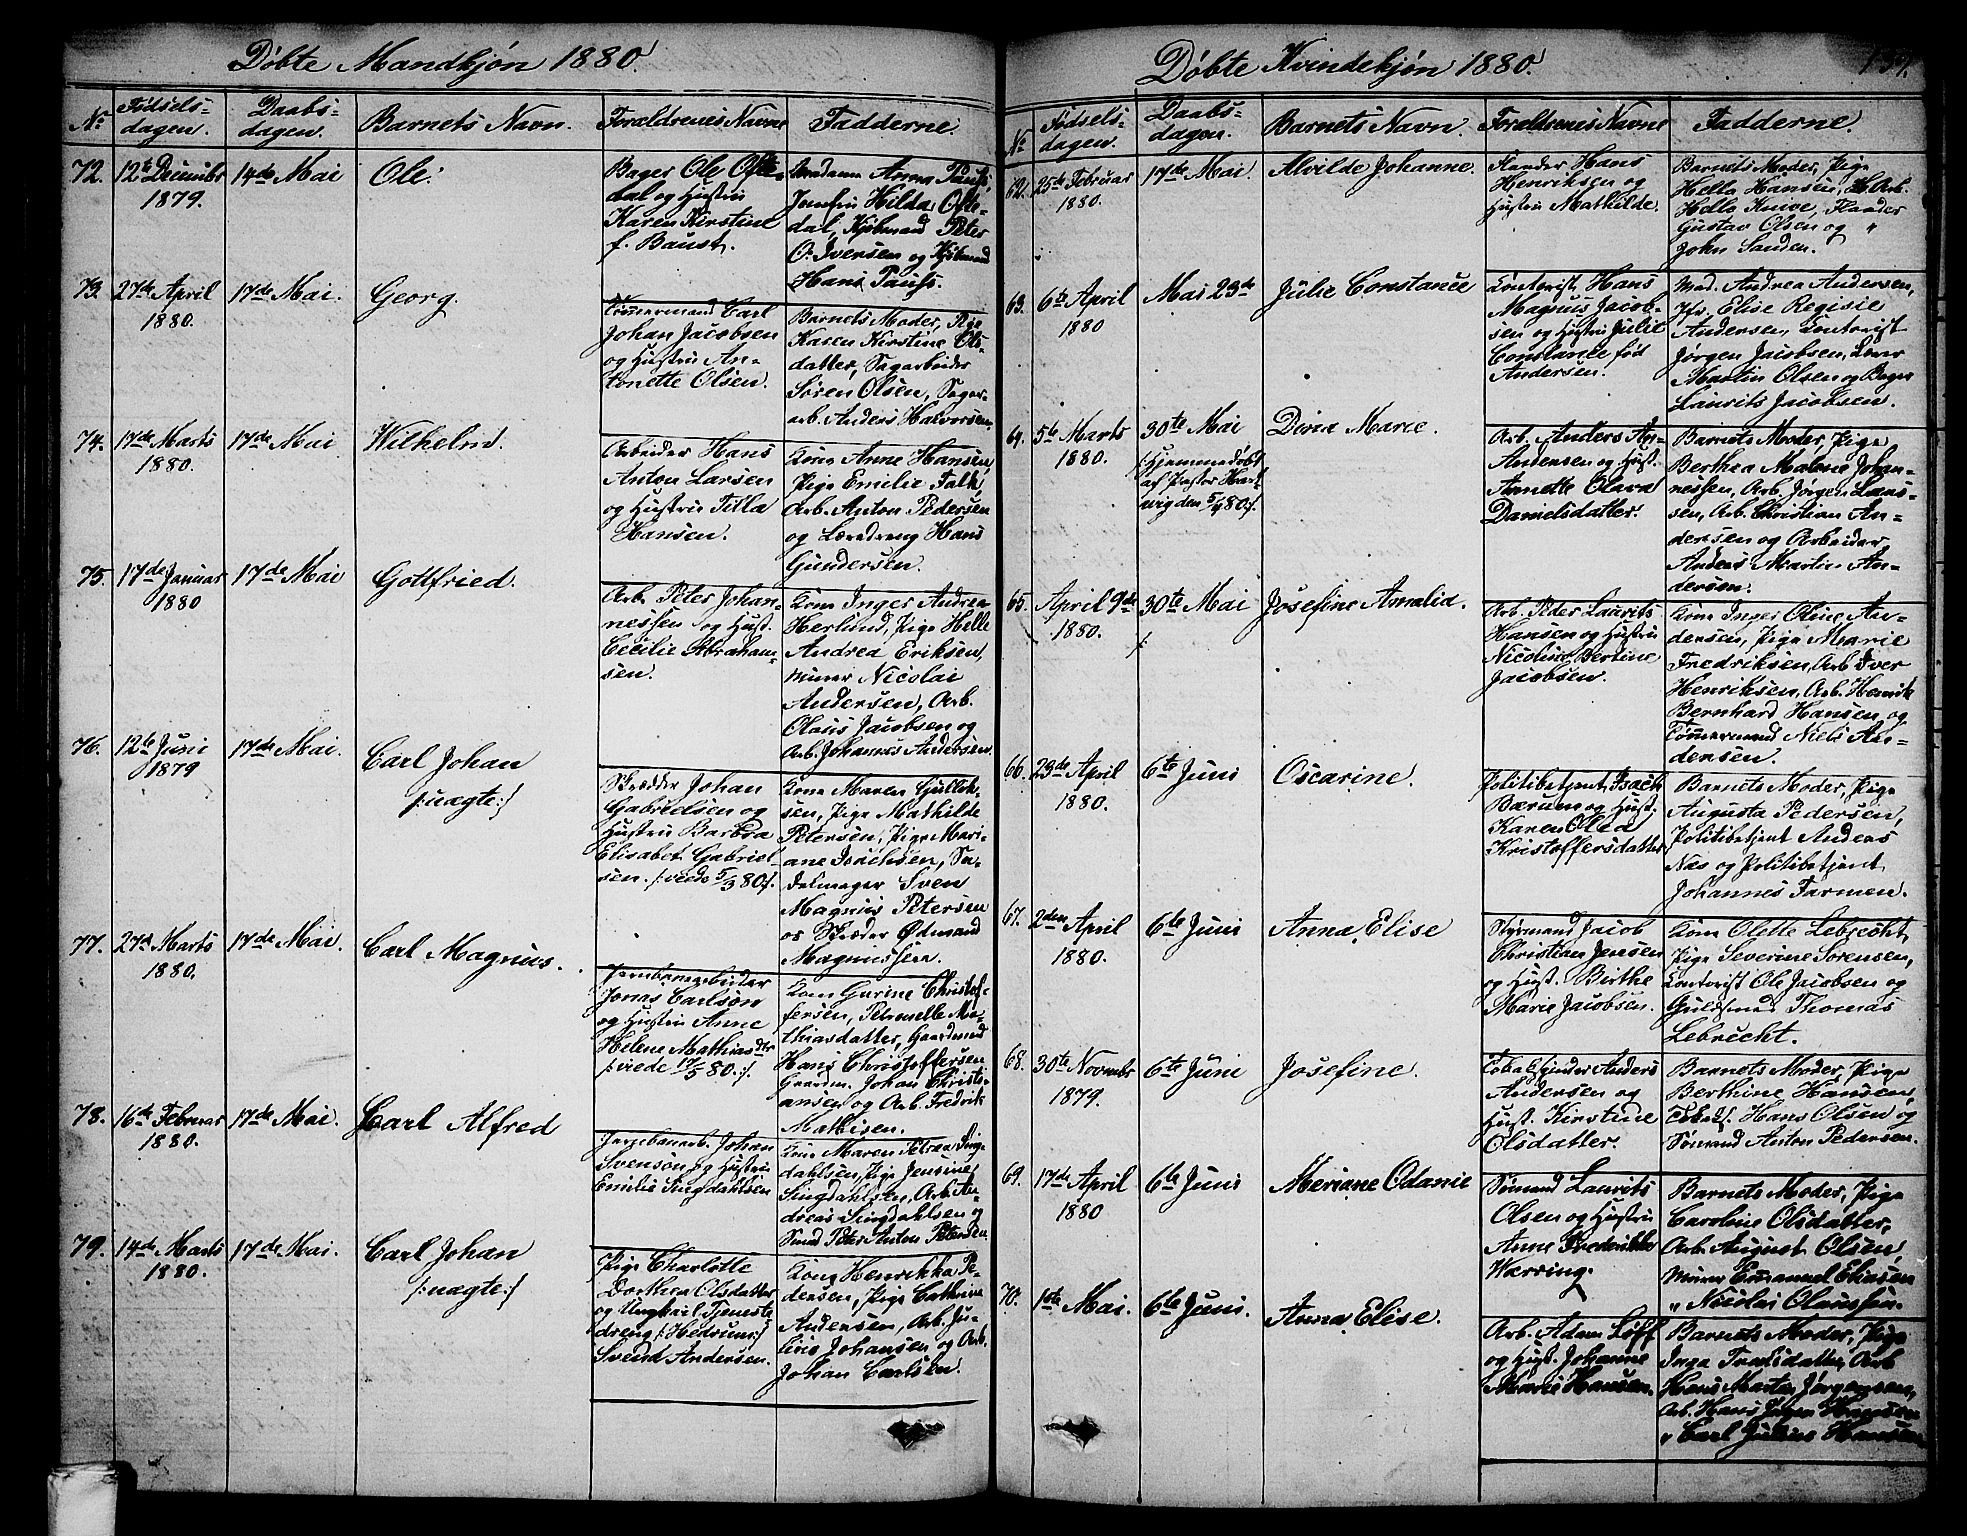 Døbte Mandkjøn 1880.
No Fødsels-dagen. Daabs-dagen. Barnets Navn. Forældrenes Navne Fadderne.
72. 12te Decembr 1879. 14de Mai Ole.
Bager Ole Ofte-
dal og Hustru
Karen Kirstine
f. Baust.
Madam Anna Pauss,
Jomfru Hilda Ofte-
dal, Kjøbmand Peter
O. Iversen og Kjøbmand
Hans Pauss.
73. 27de April 1880. 17de Mai. Georg.
Tømmermand Carl
Johan Jacobsen
og Hustru An-
tonette Olsen.
Barnets Moder, Pige
Karen Kirstine Ols-
datter, Sagarbeider
Søren Olsen, Sagar-
arb. Anders Halvorsen.
74. 17de Marts 1880. 17de Mai Wilhelm.
Arbeider Hans
Anton Larsen
og Hustru Tilla
Hansen.
Kone Anne Hansen,
Pige Emilie Falk,
Arb. Anton Pedersen
og Læredreng Hans
Gundersen.
75. 17de Januar 1880 17de Mai Gottfried.
Arb. Peter Johan-
nessen og Hust.
Cecilie Abraham-
sen.
Kone Inger Andrea
Herlund, Pige Helle
Andrea Eriksen,
Murer Nicolai
Andersen, Arb.
Olaus Jacobsen og
Arb. Johannes Andersen.
76. 12te Juni 1879 17de Mai. Carl Johan
/:uægte:/
Skrædder Johan
Gabrielsen og
Hustru Barbra
Elisabet Gabriel-
sen. /:viede 5/3 80:/.
Kone Maren Gullik-
sen, Pige Mathilde
Petersen, Pige Mari-
ane Isachsen, Sa-
delmager Sven
Magnus Petersen
og Skræder Ødmand
Magnussen.
77. 27de Marts 1880. 17de Mai. Carl Magnus.
Jernbanearbeider
Jonas Carlson
og Hustru Anne
Helene Mathiasdtr
/:viede 17/5 80.:/.
Kone Gurine Christof-
fersen, Petronelle Ma-
thiasdatter, Gaardmand
Hans Christoffersen
Gaardm. Johan Christi-
ansen og Arb. Fredrik
Mathisen.
78. 16de Februar 1880. 17de Mai. Carl Alfred
Jernbanearb. Johan
Svenson og Hustru
Emilie Lingdahlsen
Kone Maren Petrea Ling-
dahlsen, Pige Jensine
Lingdahlsen, Arb. An-
dreas Lingdahlsen og
Smed Peter Anton Petersen
79. 14de Marts 1880. 17de Mai. Carl Johan
/:uægte:/
Pige Charlotte
Dorthea Olsdatter
og Ungkarl Tjeneste
dreng /:Hedrum:/
Svend Andersen.
Kone Henrikka Pe-
dersen, Pige Cathrine
Andersen, Arb. Ju-
lius Johansen og Arb.
Johan Carlsen.
Døbte Kvindekjøn 1880.
No Fødsels-dagen. Daabs-dagen. Barnets Navn. Forældrenes Navne Fadderne.
62. 25de Februar 1880. 17de Mai. Alvilde Johanne.
Flander Hans
Henriksen og
Hustru Mathilde.
Barnets Moder, Pige
Hella Hansen,
Helle Knive, Flander
Gustav Olsen og "
John Sanden.
63. 6te April 1880 Mai 23de Julie Constance
Kontorist Hans
Magnus Jacob-
sen og Hustru Julie
Constance fød
Andersen.
Mad. Andrea Andersen,
Jfr. Elise Regisie
Andersen, Kontorist
Jørgen Jacobsen,
Martin Olsen og Bager
Laurits Jacobsen.
64. 5te Marts 1880. 30te Mai Dina Marie.
/:Hjemmedøbt
af Pastor Hart-
vig den 5/4 80:/.
Arb. Anders An-
Andersen og Hust.
Annette Olava
Danielsdatter.
Barnets Moder, Pige
Berthea Malene Johan-
nessen, Arb. Jørgen Lars-
sen, Arb. Christian An-
dersen og Arbeider
Anders Martin An-
dersen.
65. April 9de 1880. 30te Mai Josefine Amalia.
Arb. Peder Laurits
Hansen og Hustru
Nicoline Bertine
Jacobsen.
Kone Inger Oline An-
dersen, Pige Marie
Fredriksen, Arb. Iver
Henriksen, Arb. Henrik
Bernhard Hansen, og
Tømmermand Niels An-
dersen.
66. 23de April 1880. 6te Juni Oscarine.
Politibetjent Isach
Bærum og Hust.
Karen Olea
Kristoffersdatter
Barnets Moder, Pige
Augusta Pedersen,
Politibetjent Anders
Næs og Politibetjent
Johannes Farmen.
67. 2den April 1880. 6te Juni Anna Elise
Styrmand Jacob
Christian Jensen
og Hust. Birthe
Marie Jacobsen.
Kone Olette Lebrecht,
Pige Severine Sørensen,
Kontorist Ole Jacobsen og
Guldsmed Thomas
Lebrecht.
68. 30te Novembr 1879. 6te Juni Josefine.
Tobaksspinder Anders
Andersen og
Hust. Kirstine
Olsdatter.
Barnets Moder, Pige
Berthine Hansen,
Tobaksf. Hans Olsen og
Sømand Anton Pedersen.
69. 17de April 1880 6te Juni Meriane Odanie
Sømand Laurits
Olsen og Hustru
Anne Frederikke
Wærring.
Barnets Moder, Pige
Caroline Olsdatter,
Arb. August Olsen,
Murer Emanuel Eliasen
" Nicolai Olaussen.
70. 1ste Mai. 6te Juni. Anna Elise.
Arb. Adam Løff
og Hust. Johanne
Marie Hansen.
Barnets Moder, Pige
Inga Truelsdatter, Arb
Hans Martin Jørgensen,
Arb. Hans Jørgen Hansen
" Carl Julius Hansen